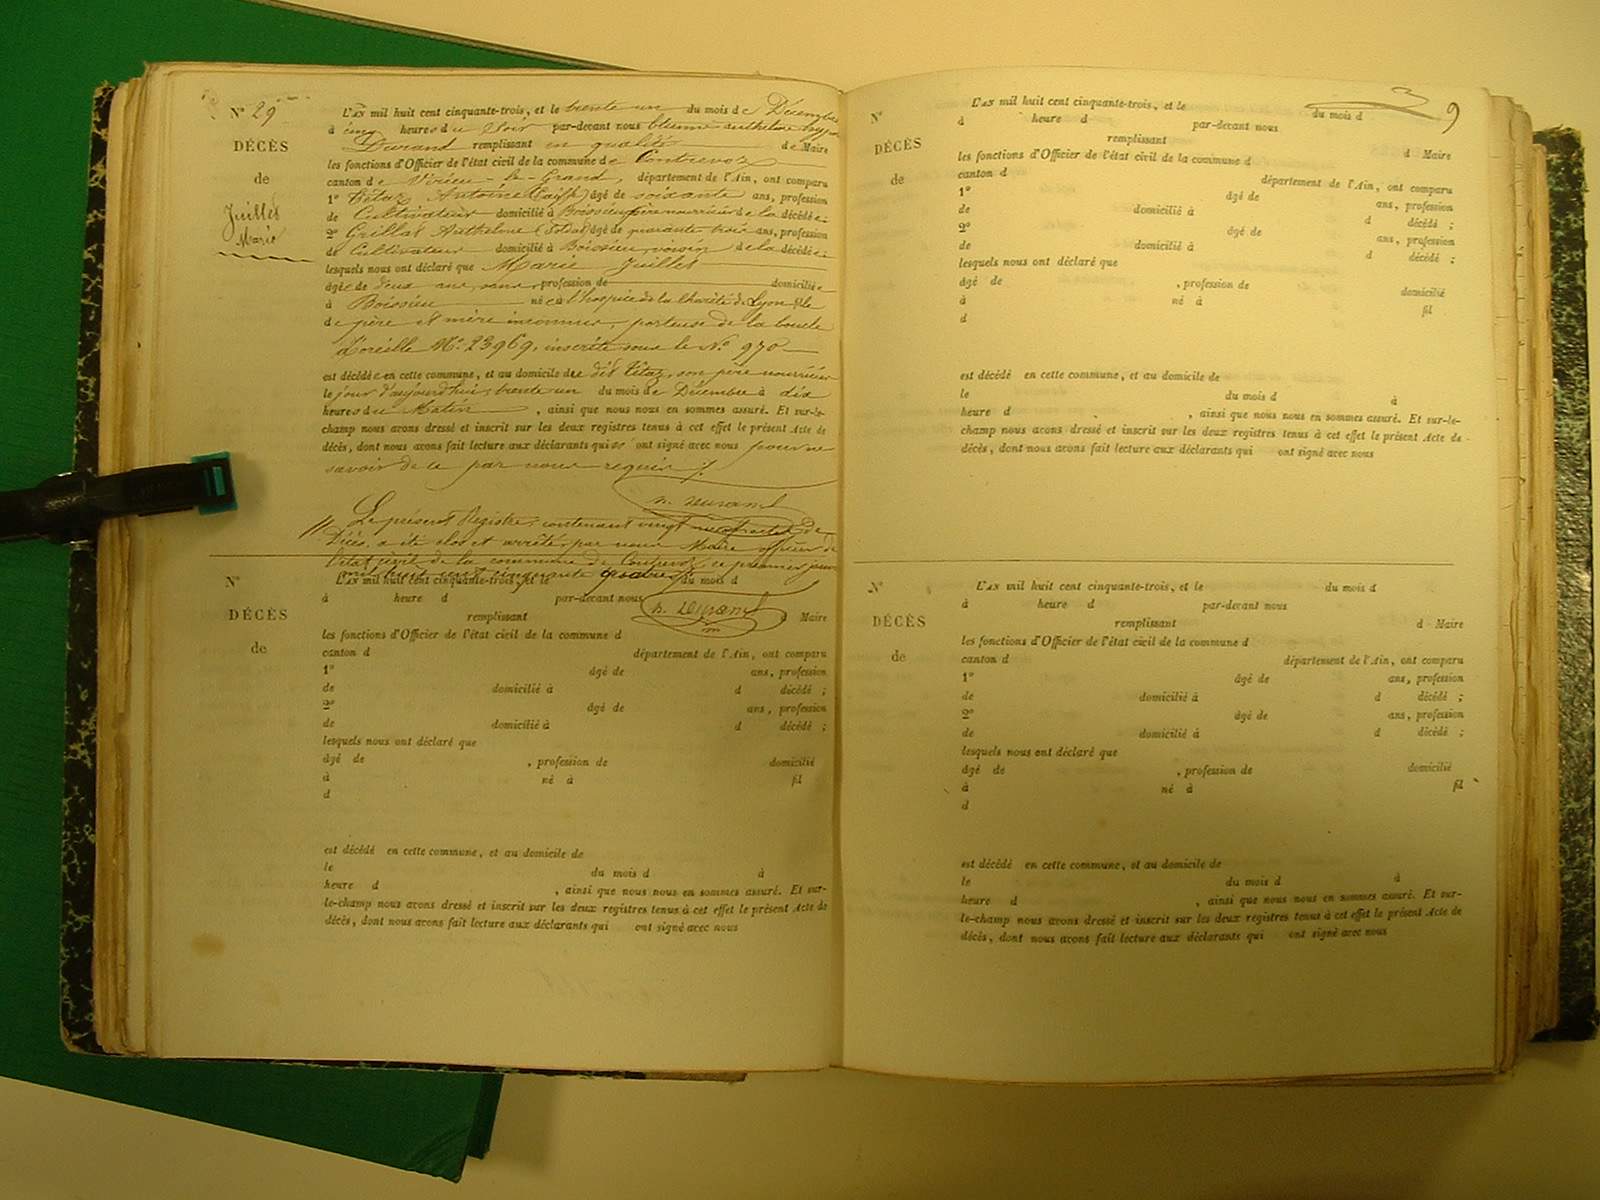 N° 29
DÉCÈS
de
Juillet
Marie
L'AN mil huit cent cinquante-trois, et le trente un du mois de Décembre
à cinq heures du Soir par-devant nous Etienne anthelme
Durand remplissant en qualité de Maire
les fonctions d'Officier de l'état civil de la commune de Contrevoz
canton de Virieu-le-Grand, département de l'Ain, ont comparu
1° Tétaz Antoine âgé de soixante ans, profession
de Cultivateur domicilié à Boissieu père nourricier de la décédée ;
2° Grillat Anthelme (Soldat) âgé de quarante trois ans, profession
de Cultivateur domicilié à Boissieu, voisin de la décédée ;
lesquels nous ont déclaré que Marie Juillet
âgée de deux ans, sans profession de domiciliée
à Boissieu née à l'hospice de la Charité de Lyon fille
de père et mère inconnus, porteuse de la boucle
d'oreille N° 23969, inscrite sous le N° 970
est décédée en cette commune, et au domicile de dit Tétaz, son père nourricier
le jour d'aujourd'hui, trente un du mois de Décembre à dix
heures du Matin, ainsi que nous nous en sommes assuré. Et sur-le-
champ nous avons dressé et inscrit sur les deux registres tenus à cet effet le présent Acte de
décès, dont nous avons fait lecture aux déclarants qui n'ont signé avec nous pour ne
savoir de ce par nous requis /.
Durand
Le présent Registre, contenant vingt neuf actes de
Décès, a été clos et arrêté par nous Maire officier de
l'état civil de la commune de Contrevoz, ce premier janvier
mil huit cent cinquante quatre
Durand
N°
DÉCÈS
de
L'AN mil huit cent cinquante-trois, et le du mois d
à heure d par-devant nous
remplissant d Maire
les fonctions d'Officier de l'état civil de la commune d
canton d département de l'Ain, ont comparu
1° âgé de ans, profession
de domicilié à d décédé ;
2° âgé de ans, profession
de domicilié à d décédé ;
lesquels nous ont déclaré que
âgé de , profession de domicilié
à né à fil
d
est décédé en cette commune, et au domicile de
le du mois d à
heure d , ainsi que nous nous en sommes assuré. Et sur-
le-champ nous avons dressé et inscrit sur les deux registres tenus à cet effet le présent Acte de
décès, dont nous avons fait lecture aux déclarants qui ont signé avec nous
9
N°
DÉCÈS
de
L'AN mil huit cent cinquante-trois, et le du mois d
à heure d par-devant nous
remplissant d Maire
les fonctions d'Officier de l'état civil de la commune d
canton d département de l'Ain, ont comparu
1° âgé de ans, profession
de domicilié à d décédé ;
2° âgé de ans, profession
de domicilié à d décédé ;
lesquels nous ont déclaré que
âgé de , profession de domicilié
à né à fil
d
est décédé en cette commune, et au domicile de
le du mois d à
heure d , ainsi que nous nous en sommes assuré. Et sur-le-
champ nous avons dressé et inscrit sur les deux registres tenus à cet effet le présent Acte de
décès, dont nous avons fait lecture aux déclarants qui ont signé avec nous
N°
DÉCÈS
de
L'AN mil huit cent cinquante-trois, et le du mois d
à heure d par-devant nous
remplissant d Maire
les fonctions d'Officier de l'état civil de la commune d
canton d département de l'Ain, ont comparu
1° âgé de ans, profession
de domicilié à d décédé ;
2° âgé de ans, profession
de domicilié à d décédé ;
lesquels nous ont déclaré que
âgé de , profession de domicilié
à né à fil
d
est décédé en cette commune, et au domicile de
le du mois d à
heure d , ainsi que nous nous en sommes assuré. Et sur-
le-champ nous avons dressé et inscrit sur les deux registres tenus à cet effet le présent Acte de
décès, dont nous avons fait lecture aux déclarants qui ont signé avec nous